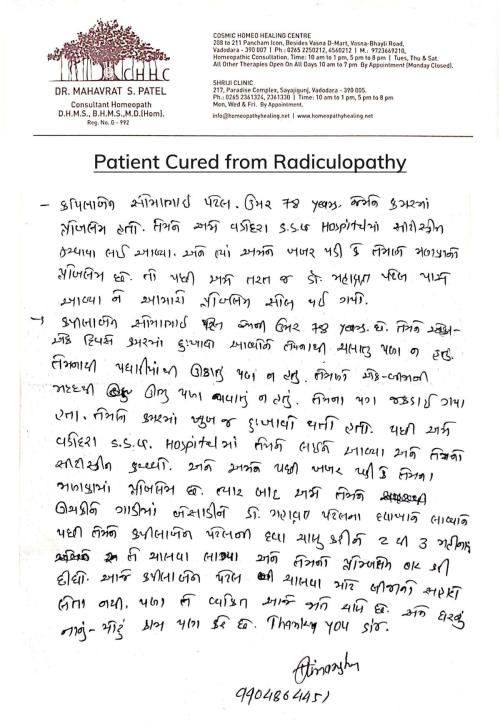 CHHC
DR. MAHAVRAT S. PATEL
Consultant Homeopath
D.H.M.S., B.H.M.S.,M.D.(Hom).
Reg. No. G - 992
COSMIC HOMEO HEALING CENTRE
208 to 211 Pancham Icon, Besides Vasna D-Mart, Vasna-Bhayli Road,
Vadodara - 390 007 | Ph.: 0265 2250212, 6560212 | M.: 9723669210,
Homeopathic Consultation. Time: 10 am to 1 pm, 5 pm to 8 pm | Tues, Thu & Sat.
All Other Therapies Open On All Days 10 am to 7 pm By Appointment (Monday Closed).
SHRIJI CLINIC
217, Paradise Complex, Sayajigunj, Vadodara - 390 005.
Ph.: 0265 2361324, 2361330 | Time: 10 am to 1 pm, 5 pm to 8 pm
Mon, Wed & Fri. By Appointment.
info@homeopathyhealing.net | www.homeopathyhealing.net
Patient Cured from Radiculopathy
- કપિલાબેન સોમાભાઈ પટેલ. ઉમર 78 years. જેમને કમરમાં
પ્રોબ્લેમ હતી. તેમને અમે વડોદરા S.S.G. Hospitalમાં સીટીસ્કેન
કરાવવા લઈ આવ્યા. અને ત્યાં અમને ખબર પડી કે તેમના મણકામાં
પ્રોબ્લેમ છે. તો પછી અમે તરત જ ડૉ. મહાવ્રત પટેલ પાસે
આવ્યા ને અમારો પ્રોબ્લેમ સોલ્વ થઈ ગયો.
- કપીલાબેન સોમાભાઈ પટેલ એમની ઉમર 78 years છે. તેમને
એક દિવસ કમરમાં દુઃખાવો આવ્યો ને તેમનાથી ચલાતું પણ ન હતું.
તેમનાથી પથારીમાંથી ઊઠાતું પણ ન હતું. તેમને એક-બીજાની
મદદથી ઊભું પણ થવાતું ન હતું. તેમના પગ જકડાઈ ગયા
હતા. તેમને કમરમાં ખુબ જ દુઃખાવો થતો હતો. પછી અમે
વડોદરા S.S.G. Hospitalમાં તેમને લઈને આવ્યા અને તેમનો
સીટીસ્કેન કરાવ્યો. અને અમને પછી ખબર પડી કે તેમના
મણકામાં પ્રોબ્લેમ છે. ત્યાર બાદ અમે તેમને
ઊંચકીને ગાડીમાં બેસાડીને ડૉ. મહાવ્રત પટેલના દવાખાને લાવ્યા
પછી તેમને કપીલાબેન પટેલની દવા ચાલુ કરીને 2 થી 3 મહીનામાં
તે ચાલવા લાગ્યા અને તેમનો પ્રોબ્લેમ દૂર કરી
દીધો. આજે કપીલાબેન પટેલ ચાલવા માટે બીજાનો સહારો
લેતા નથી. પણ તે વ્યક્તિ આજે ચાલે છે. અને ઘરનું
નાનું-મોટું કામ પણ કરે છે. Thank you સર.
9904864451